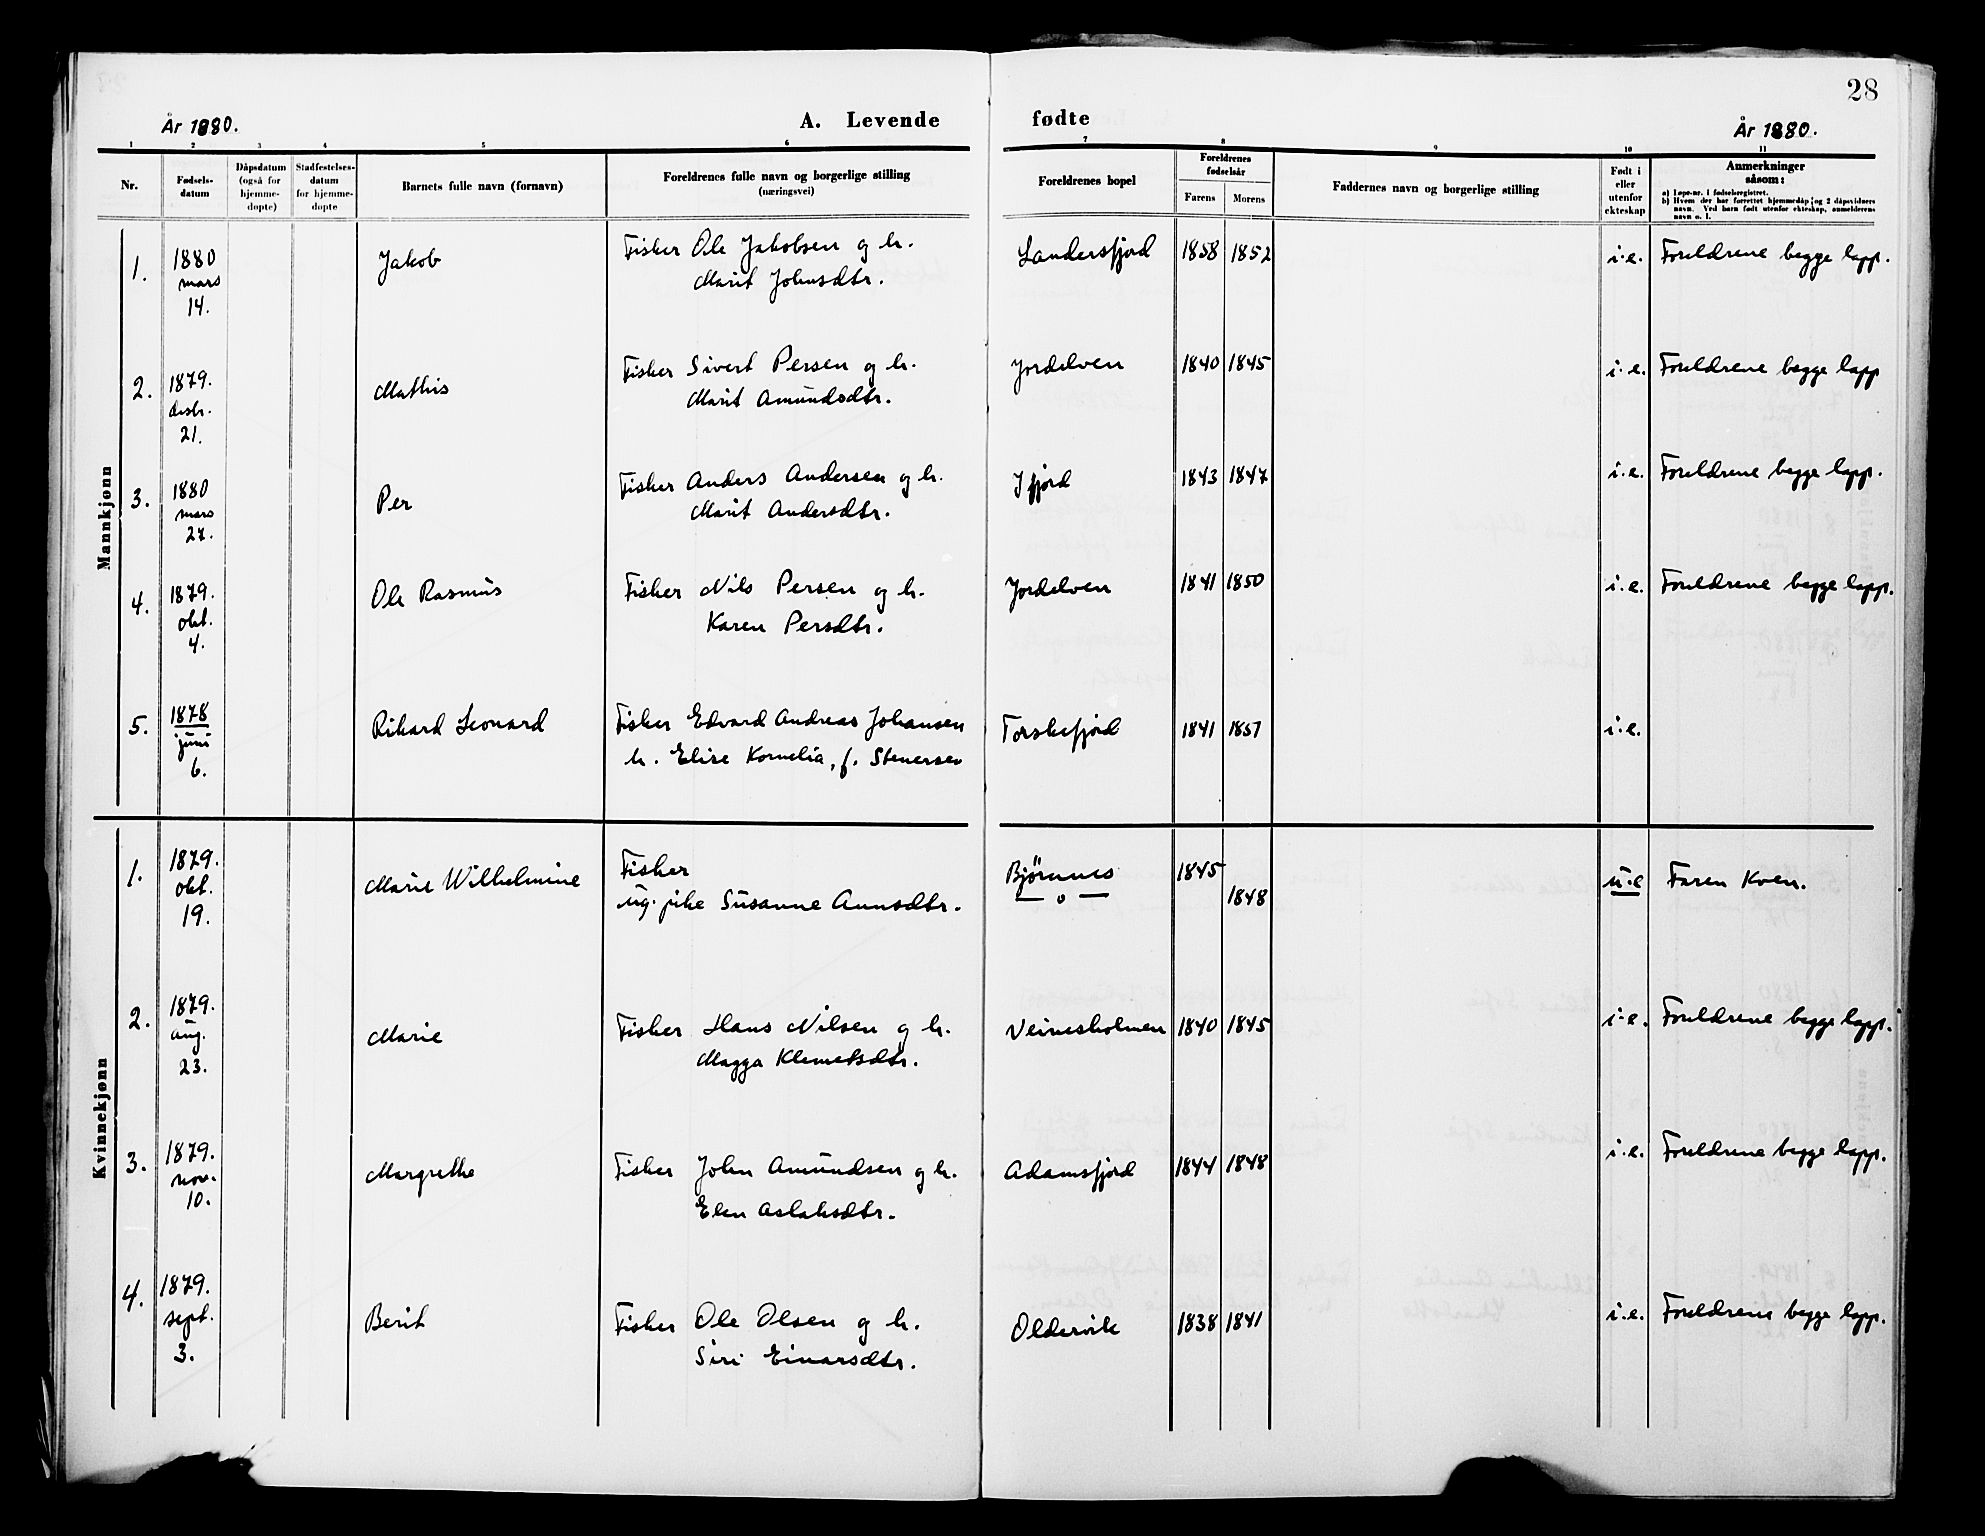 28
År 1880.
A. Levende fødte
År 1880.
1 2 3 4 5 6 7 8 9 10 11
Nr.
Fødsels-
datum
Dåpsdatum
(også for
hjemme-
døpte)
Stadfestelses-
datum
for hjemme-
døpte
Barnets fulle navn (fornavn)
Foreldrenes fulle navn og borgerlige stilling
(næringsvei)
Foreldrenes bopel
Foreldrenes
fødselsår
Farens Morens
Faddernes navn og borgerlige stilling
Født i
eller
utenfor
ekteskap
Anmerkninger
såsom:
a) Løpe-nr. i fødselsregistret.
b) Hvem der har forrettet hjemmedåp og 2 dåpsvidners
navn. Ved barn født utenfor ekteskap, anmelderens
navn o. l.
Mannkjønn
1. 1880 mars 14. Jakob Fisker Ole Jakobsen og h. Landersfjord 1858 1852 i.e. Foreldrene begge lapp.
Marit Johnsdtr.
2. 1879. desbr. 21. Mathis Fisker Sivert Persen og h. Jordelven 1840 1845 i.e. Foreldrene begge lapp
Marit Amundsdtr.
3. 1880 mars 27. Per Fisker Anders Andersen og h. Ifjord 1843 1847 i.e. Foreldrene begge lapp.
Marit Andersdtr.
4. 1879. okt. 4. Ole Rasmus Fisker Nils Persen og h. Jordelven 1841 1850 i.e. Foreldrene begge lapp.
Karen Persdtr.
5. 1878 juni 6. Rikard Leonard Fisker Edvard Andreas Johansen Torskefjord 1841 1857 i.e.
h. Elise Kornelia, f. Stenersen
Kvinnekjønn
1. 1879. okt. 19. Marie Wilhelmine Fisker Bjørnnes 1845 u.e Faren Kven.
ug. pike Susanne Annsdtr. — o — 1848
2. 1879. aug. 23. Marie Fisker Hans Nilsen og h. Veinesholmen 1840 1845 i.e. Foreldrene begge lapp.
Magga Klemetsdtr.
3. 1879. nov. 10. Margrethe Fisker John Amundsen og h. Adamsfjord 1844 1848 i.e. Foreldrene begge lapp.
Elen Aslaksdtr.
4. 1879. sept. 3. Berit Fisker Ole Olsen og h. Oldervik 1838 1841 i.e. Foreldrene begge lapp.
Siri Einarsdtr.